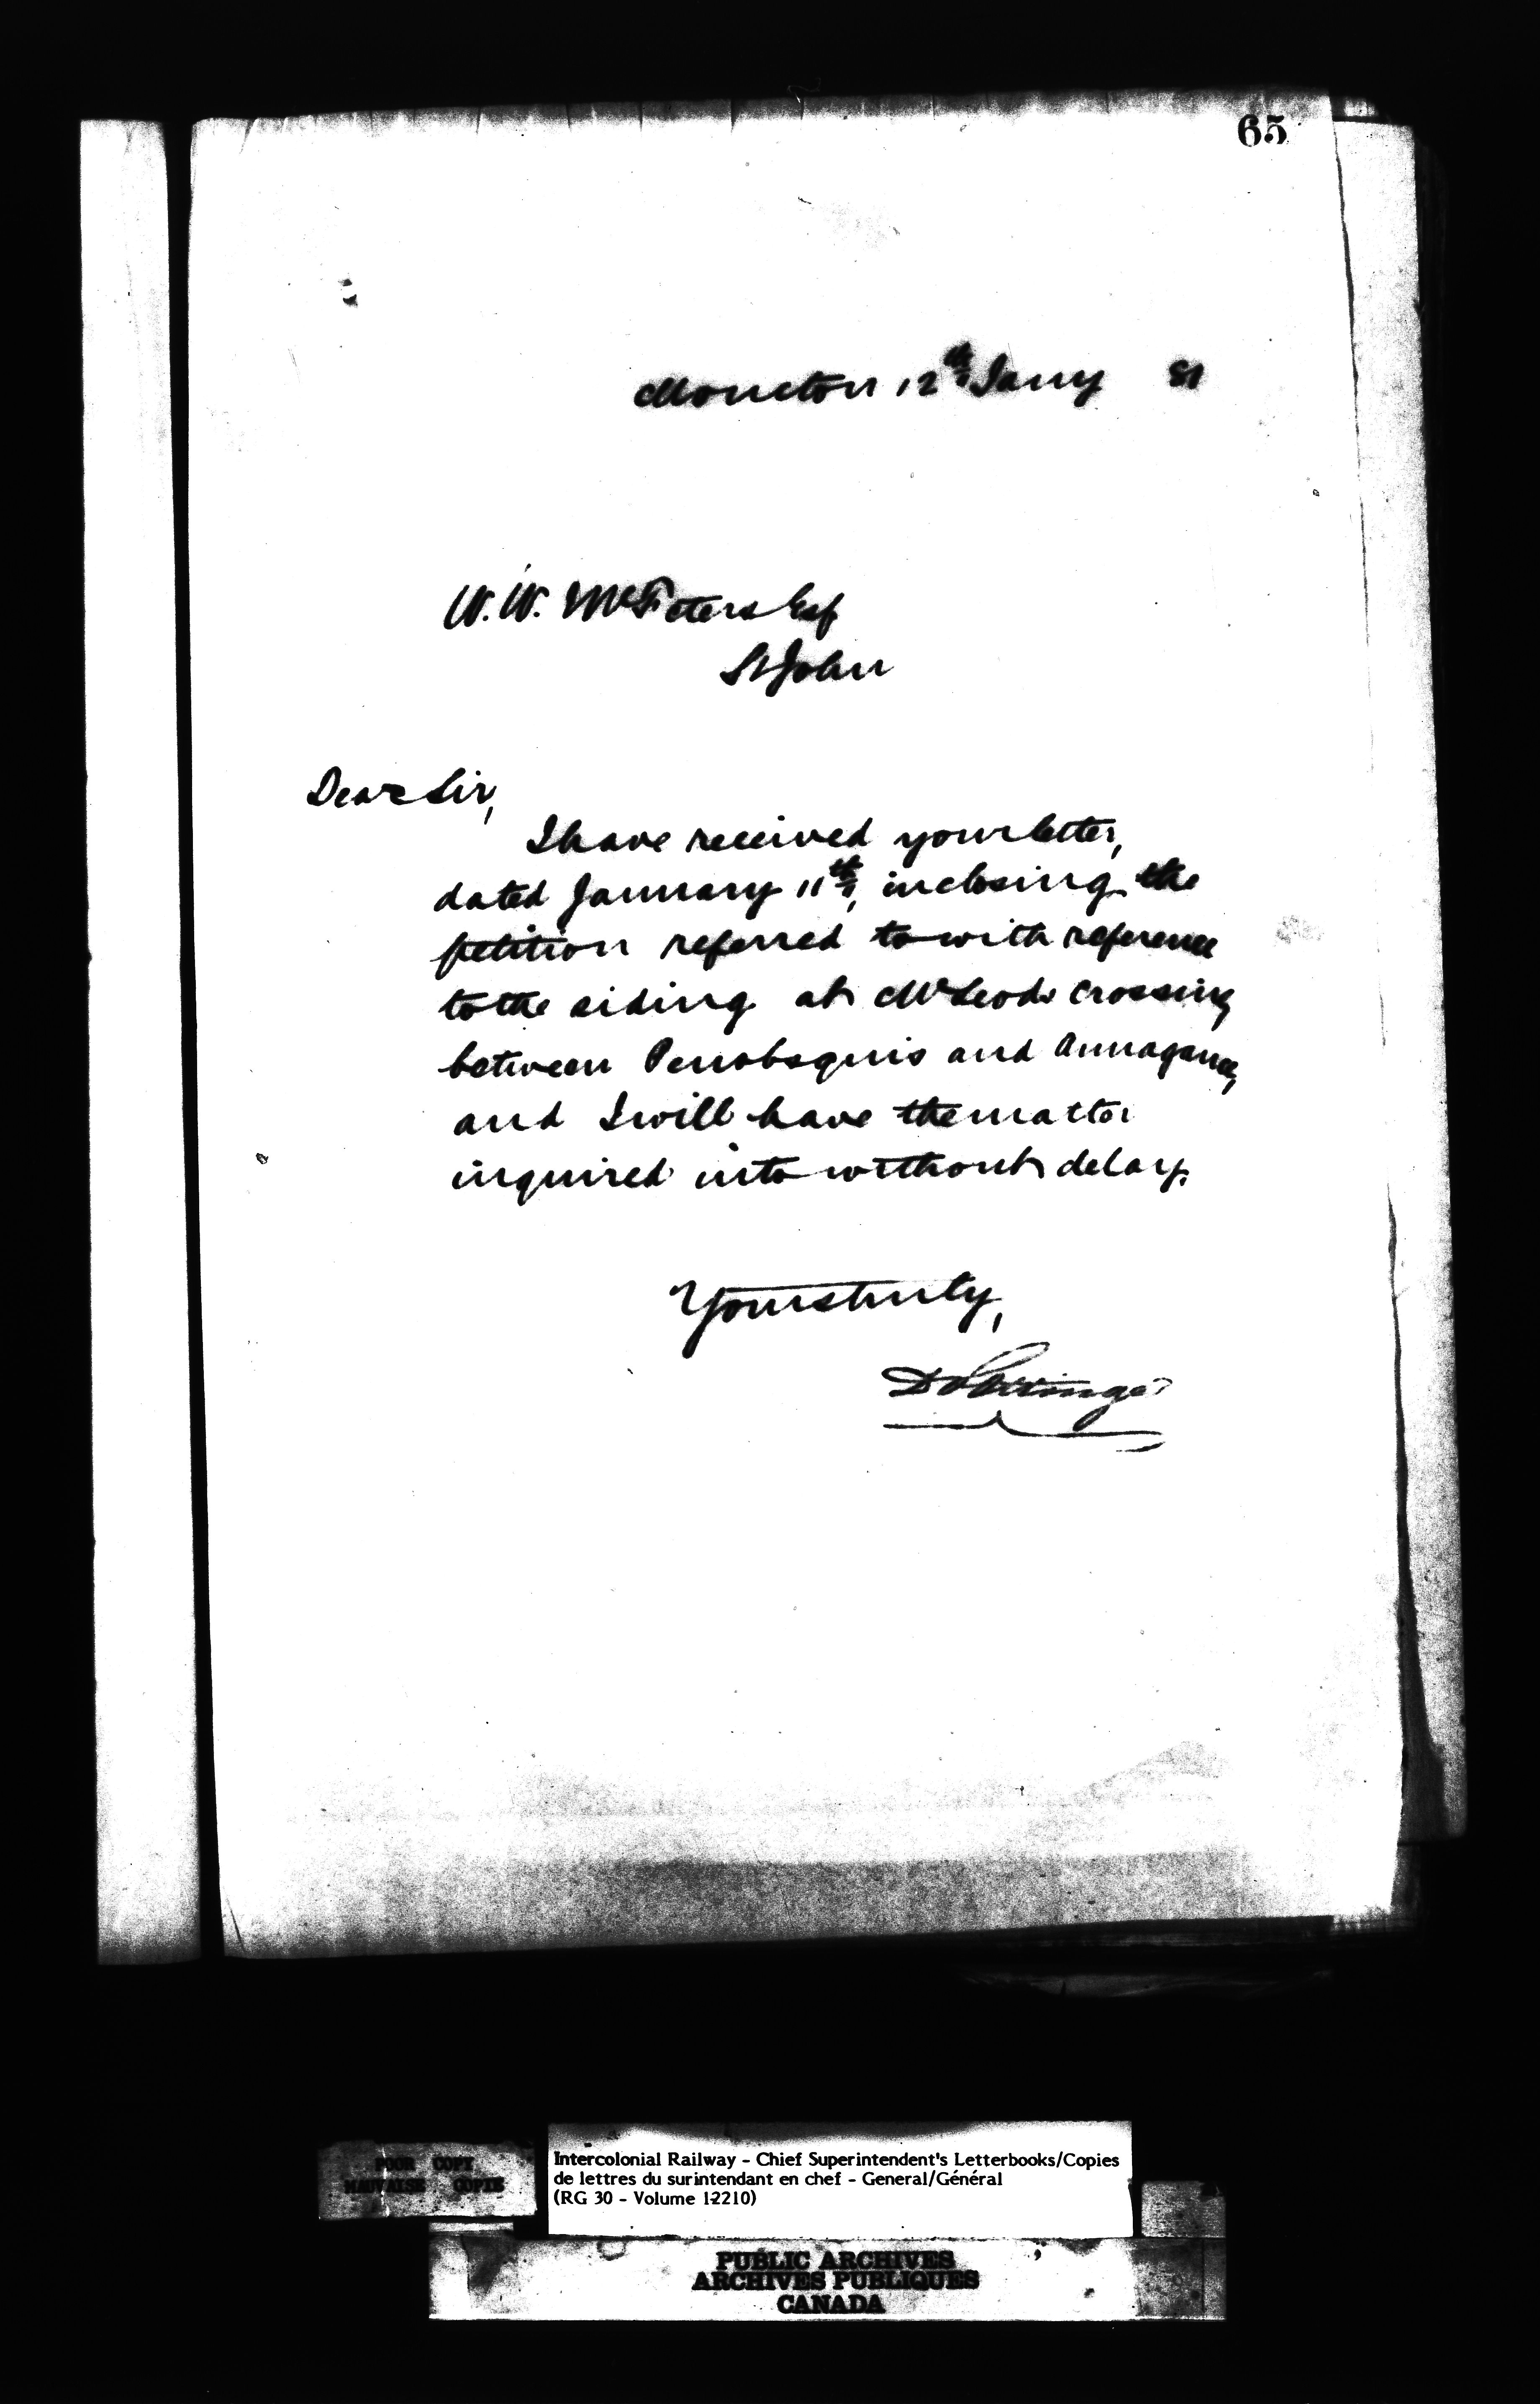 65
Moncton 12th Jany 81
W. W. McFeters Esq
St John
Dear Sir,
I have received your letter,
dated January 11th, inclosing the
petition referred to with reference
to the siding at McLeods crossing
between Penobsquis and Annagance,
and I will have the matter
inquired into without delay.
Yours truly,
D Pottinger
POOR COPY
MAUVAISE COPIE
Intercolonial Railway - Chief Superintendent's Letterbooks/Copies
de lettres du surintendant en chef - General/Général
(RG 30 - Volume 12210)
PUBLIC ARCHIVES
ARCHIVES PUBLIQUES
CANADA